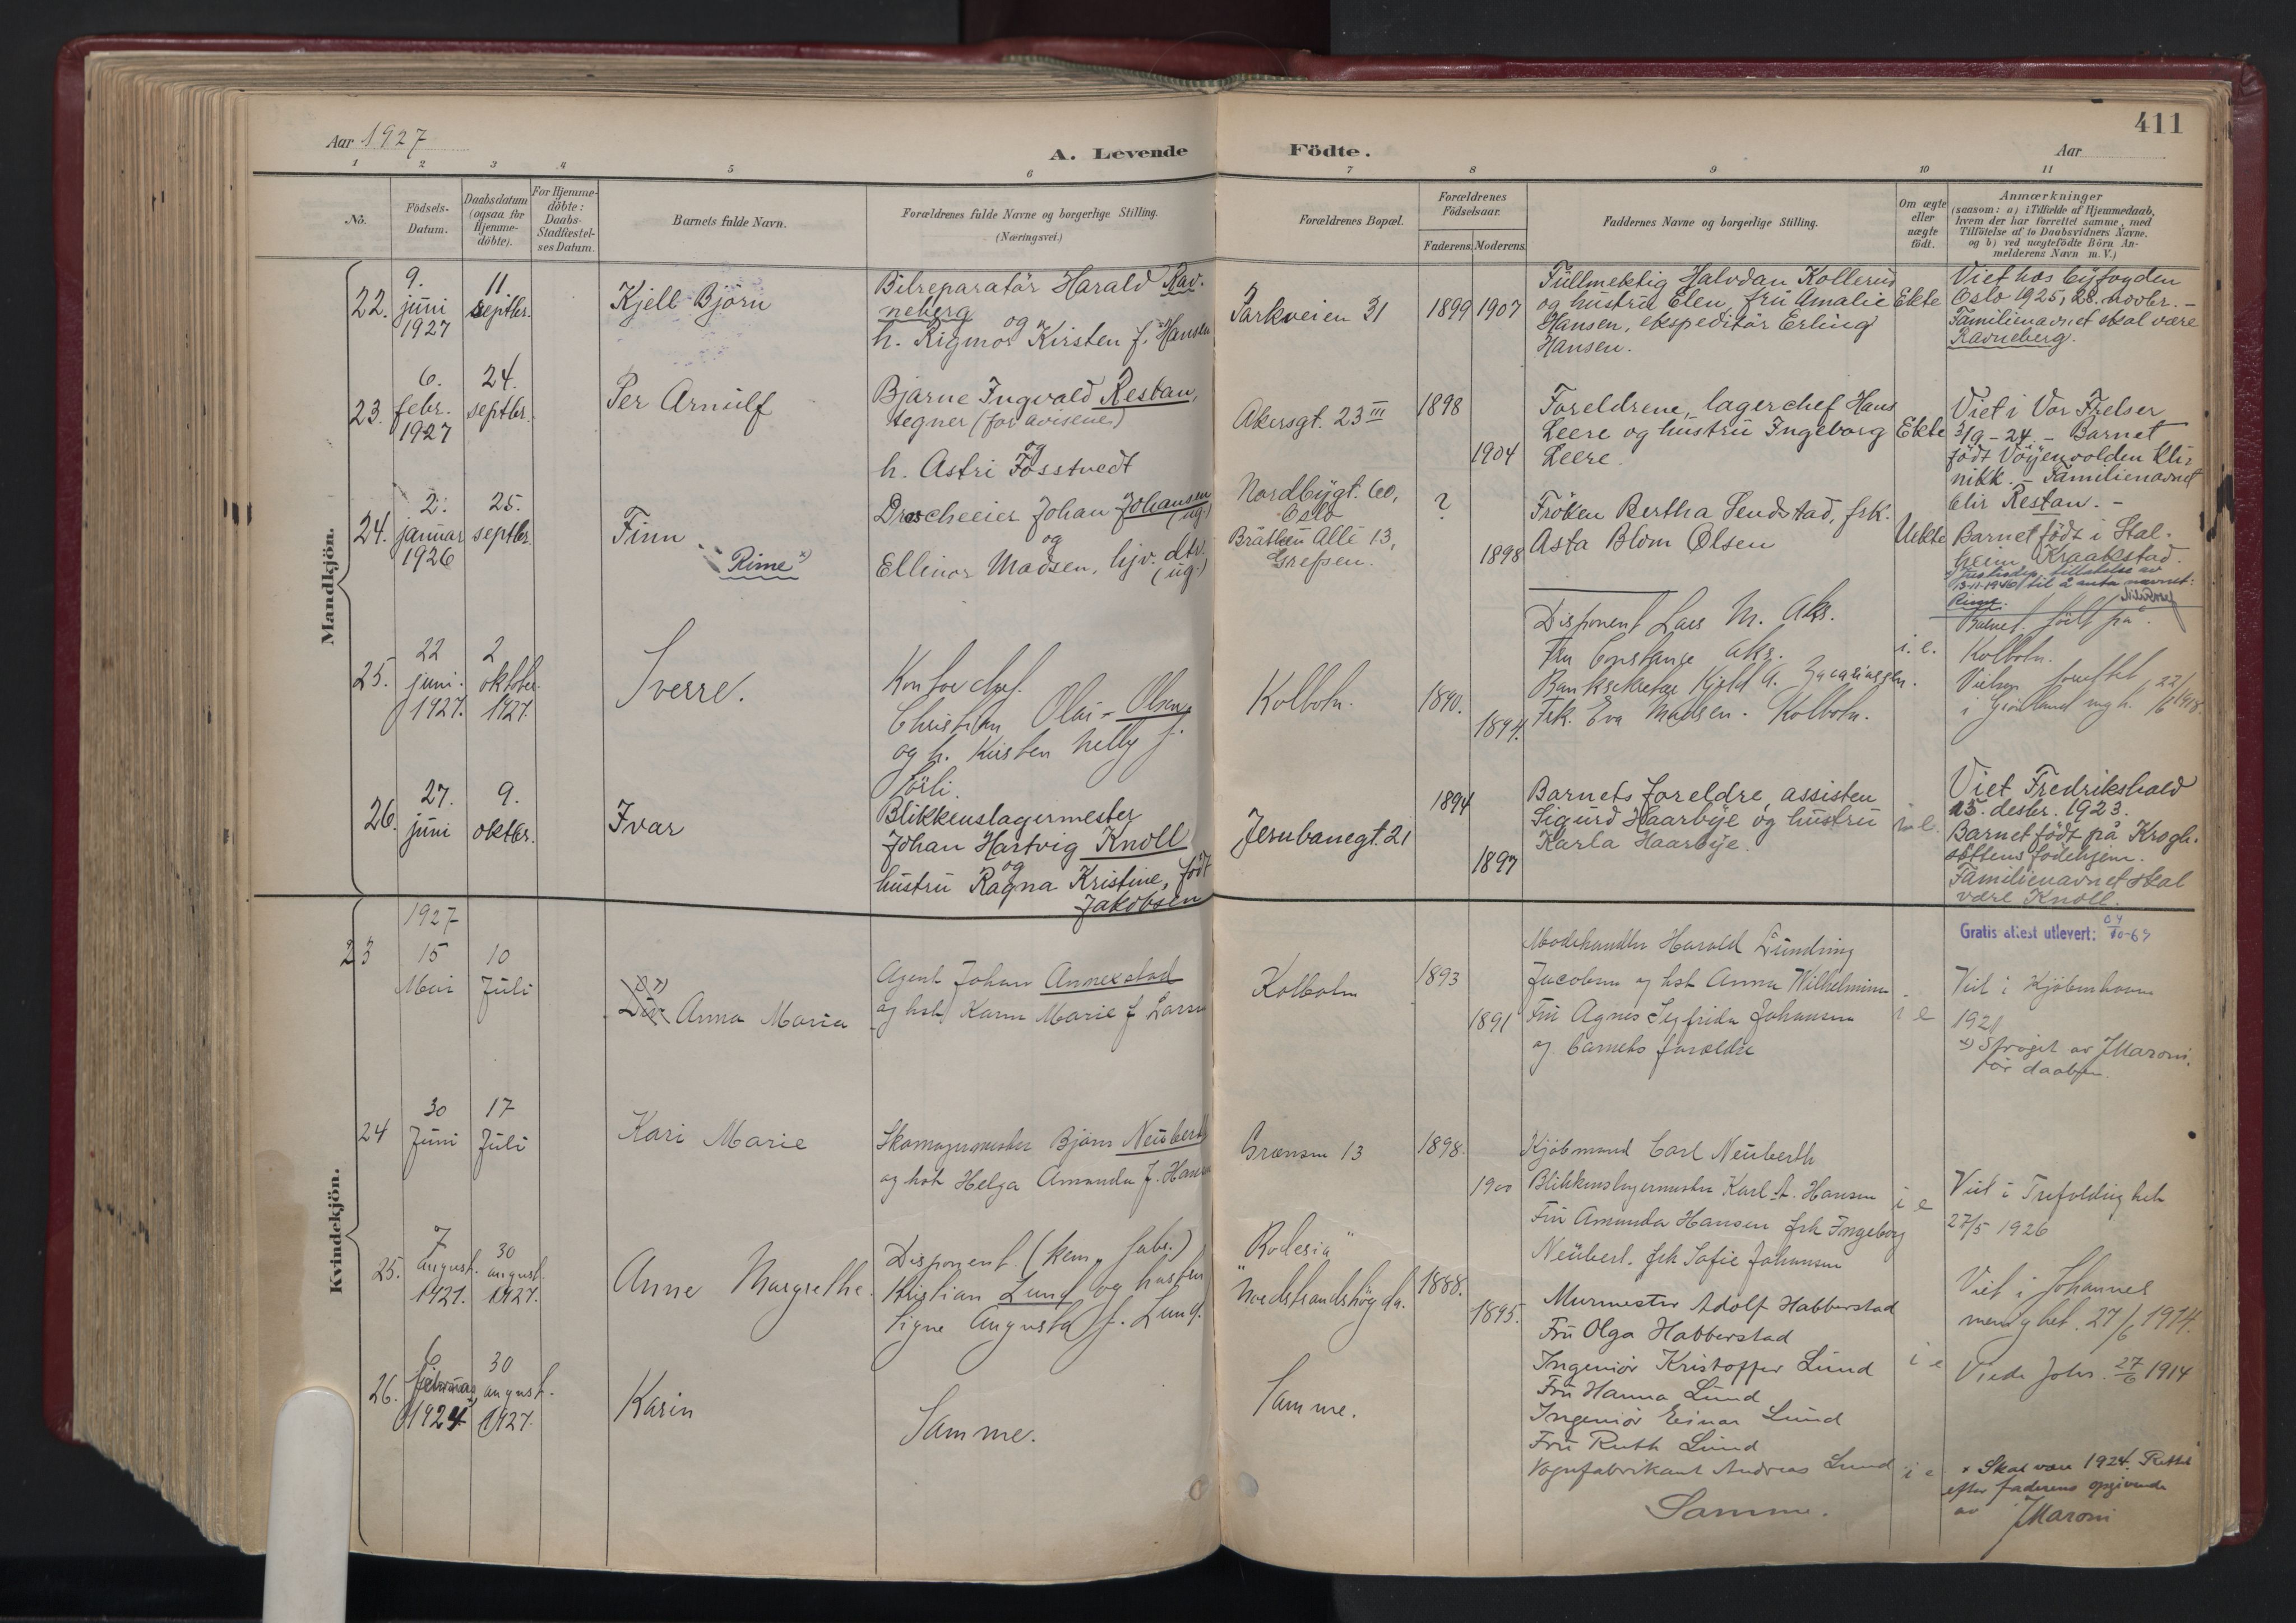 411
Aar 1927
A. Levende Födte.
Aar
1 2 3 4 5 6 7 8 9 10 11
No.
Födsels-Datum.
Daabsdatum (ogsaa for Hjemme-döbte).
For Hjemme-döbte: Daabs-Stadfæstel-ses Datum.
Barnets fulde Navn.
Forældrenes fulde Navne og borgerlige Stilling. (Næringsvei.)
Forældrenes Bopæl.
Forældrenes Födselsaar.
Faderens. Moderens.
Faddernes Navne og borgerlige Stilling.
Om ægte eller uægte födt.
Anmærkninger
(saasom: a) i Tilfælde af Hjemmedaab,
hvem der har forrettet samme, med
Tilföielse af to Daabsvidners Navne.
og b) ved uægtefödte Börn An-
melderens Navn m. V.)
Mandkjön.
22.
9. juni 1927
11 septbr.
Kjell Björn
Bilreparatör Harald Rav-
neberg
og
h. Rigmor Kirsten f. Hansen
Parkveien 31
1899 1907
Fullmektig Halvdan Kollerud
og hustru Elen, fru Amalie
Hansen, ekspeditör Erling
Hansen.
Ekte
Viet hos byfogden
Oslo 1925, 28. novbr. -
Familienavnet skal være
Ravneberg.
23.
6. febr. 1927
24. septbr.
Per Arnulf
Bjarne Ingvald Restan,
tegner (for avisene)
og
h. Astri Fosstvedt
Akersgt. 23 III
1898
1904
Foreldrene, lagerchef Hans
Leere og hustru Ingeborg
Leere.
Ekte
Viet i Vor Frelser
3/9 - 24. - Barnet
födt Vöyenvolden kli-
nikk. - Familienavnet
blir Restan. -
24.
2. januar 1926
25. septbr.
Finn
"Rime" x)
Droscheeier Johan Johansen
(ug.)
og
Ellinor Madsen, hjv. dtr.
(ug.)
Nordbygt. 60,
Oslo
Bråthen Allé 13,
Grefsen.
?
1898
Fröken Bertha Sendstad, frk.
Asta Blom Olsen
Uekte
Barnet födt i Stal-
heim, Kraakstad.
x) Justisdep. tillatelse av
13-11-1940 til å anta navnet:
Rime.
25.
22 juni. 1927.
2 oktober 1927.
Sverre.
Kontorchef.
Christian Olai - Olsen
og h. Kirsten Nelly f.
Sörli.
Kolbotn.
1890.
1894.
Disponent Lars M. Aks.
Fru Constance Aks.
Banksekretær Kjeld A. Zacariassen.
Frk. Eva Madsen. Kolbotn.
i. e.
Barnet födt på
Kolbotn.
Vielsen forrettet
i Grönland mgh. 22/6 1918.
26.
27. juni
9. oktbr.
Ivar
Blikkenslagermester
Johan Hartvig Knoll
og
hustru Ragna Kristine, födt
Jakobsen
Jernbanegt. 21
1894
1897
Barnets foreldre, assistent
Sigurd Haarbye og hustru
Karla Haarbye.
Viet Fredrikshald
25. desbr. 1923.
Barnet födt på Krogh.
stöttens födehjem.
Familienavnet skal
være Knoll.
Gratis attest utlevert:
Kvindekjön.
23
1927
15 Mai
10 Juli
Anna Maria
Agent Johan Annexstad
og hst. Karen Marie f Larsen
Kolbotn
1893
1891
Modehandler Harald Lundring
Jacobsen og hst Anna Wilhelmine
Fru Agnes Sigfrida Johansen
og barnets forældre
i e
Viet i Kjöbenhavn
1921
x) Ströget av JMaroni.
för daaben.
24
30 Juni
17 Juli
Kari Marie
Skomagermester Björn Neuberth
og hst Helga Amanda f. Hansen
Grænsen 13
1898.
1900
Kjöbmand Carl Neuberth
Blikkenslagermester Karl A. Hansen
Fru Amanda Hansen frk Ingeborg
Neubert. frk Sofie Johansen
i e
Viet i Trefoldighet
27/5 1926
25.
7 august. 1927.
30 august. 1927.
Anne Margrethe.
Disponent (kem. fabr.)
Kristian Lund og hustru
Signe Augusta f. Lund.
"Rodesia"
Nordstrandshögda.
1888.
1895.
Murmester Adolf Habberstad
Fru Olga Habberstad
Ingeniör Kristoffer Lund
Fru Hanna Lund
Ingeniör Einar Lund
Fru Ruth Lund
Vognfabrikant Andreas Lund
i e
Viet i Johannes
menighet. 27/6 1914.
26.
6 februar 1924
30 august. 1927.
Karin
Samme.
Samme.
Samme.
i e
Viede Johs. 27/6 1914
x Skal være 1924. Rettet
efter faderens opgivende
av JMaroni